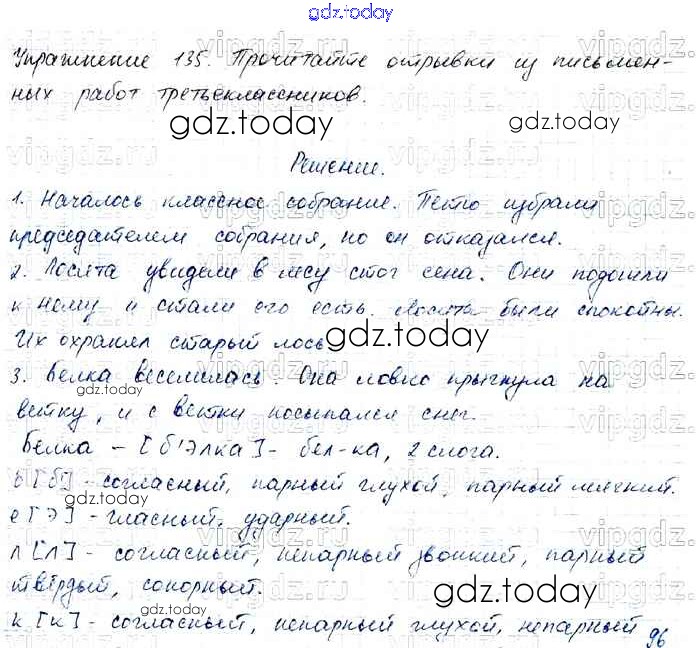 gdz.today
Упражнение 135. Прочитайте отрывки из письмен-
ных работ третьеклассников.
gdz.today
gdz.today
Решение.
1. Началось классное собрание. Петю избрали
председателем собрания, но он отказался.
2. Лосята увидели в лесу стог сена. Они подошли
к нему и стали его есть. Лосята были спокойны.
Их охранял старый лось.
gdz.today
3. Белка веселилась. Она ловко прыгнула на
gdz.today
ветку, и с ветки посыпался снег.
Белка - [б'элка] - бел-ка, 2 слога.
б [б'] - согласный, парный глухой, парный мягкий.
gdz.today
е [э] - гласный, ударный.
л [л] - согласный, непарный звонкий, парный
твёрдый, сонорный.
gdz.today
gdz.today
к [к] - согласный, непарный глухой, непарный
96